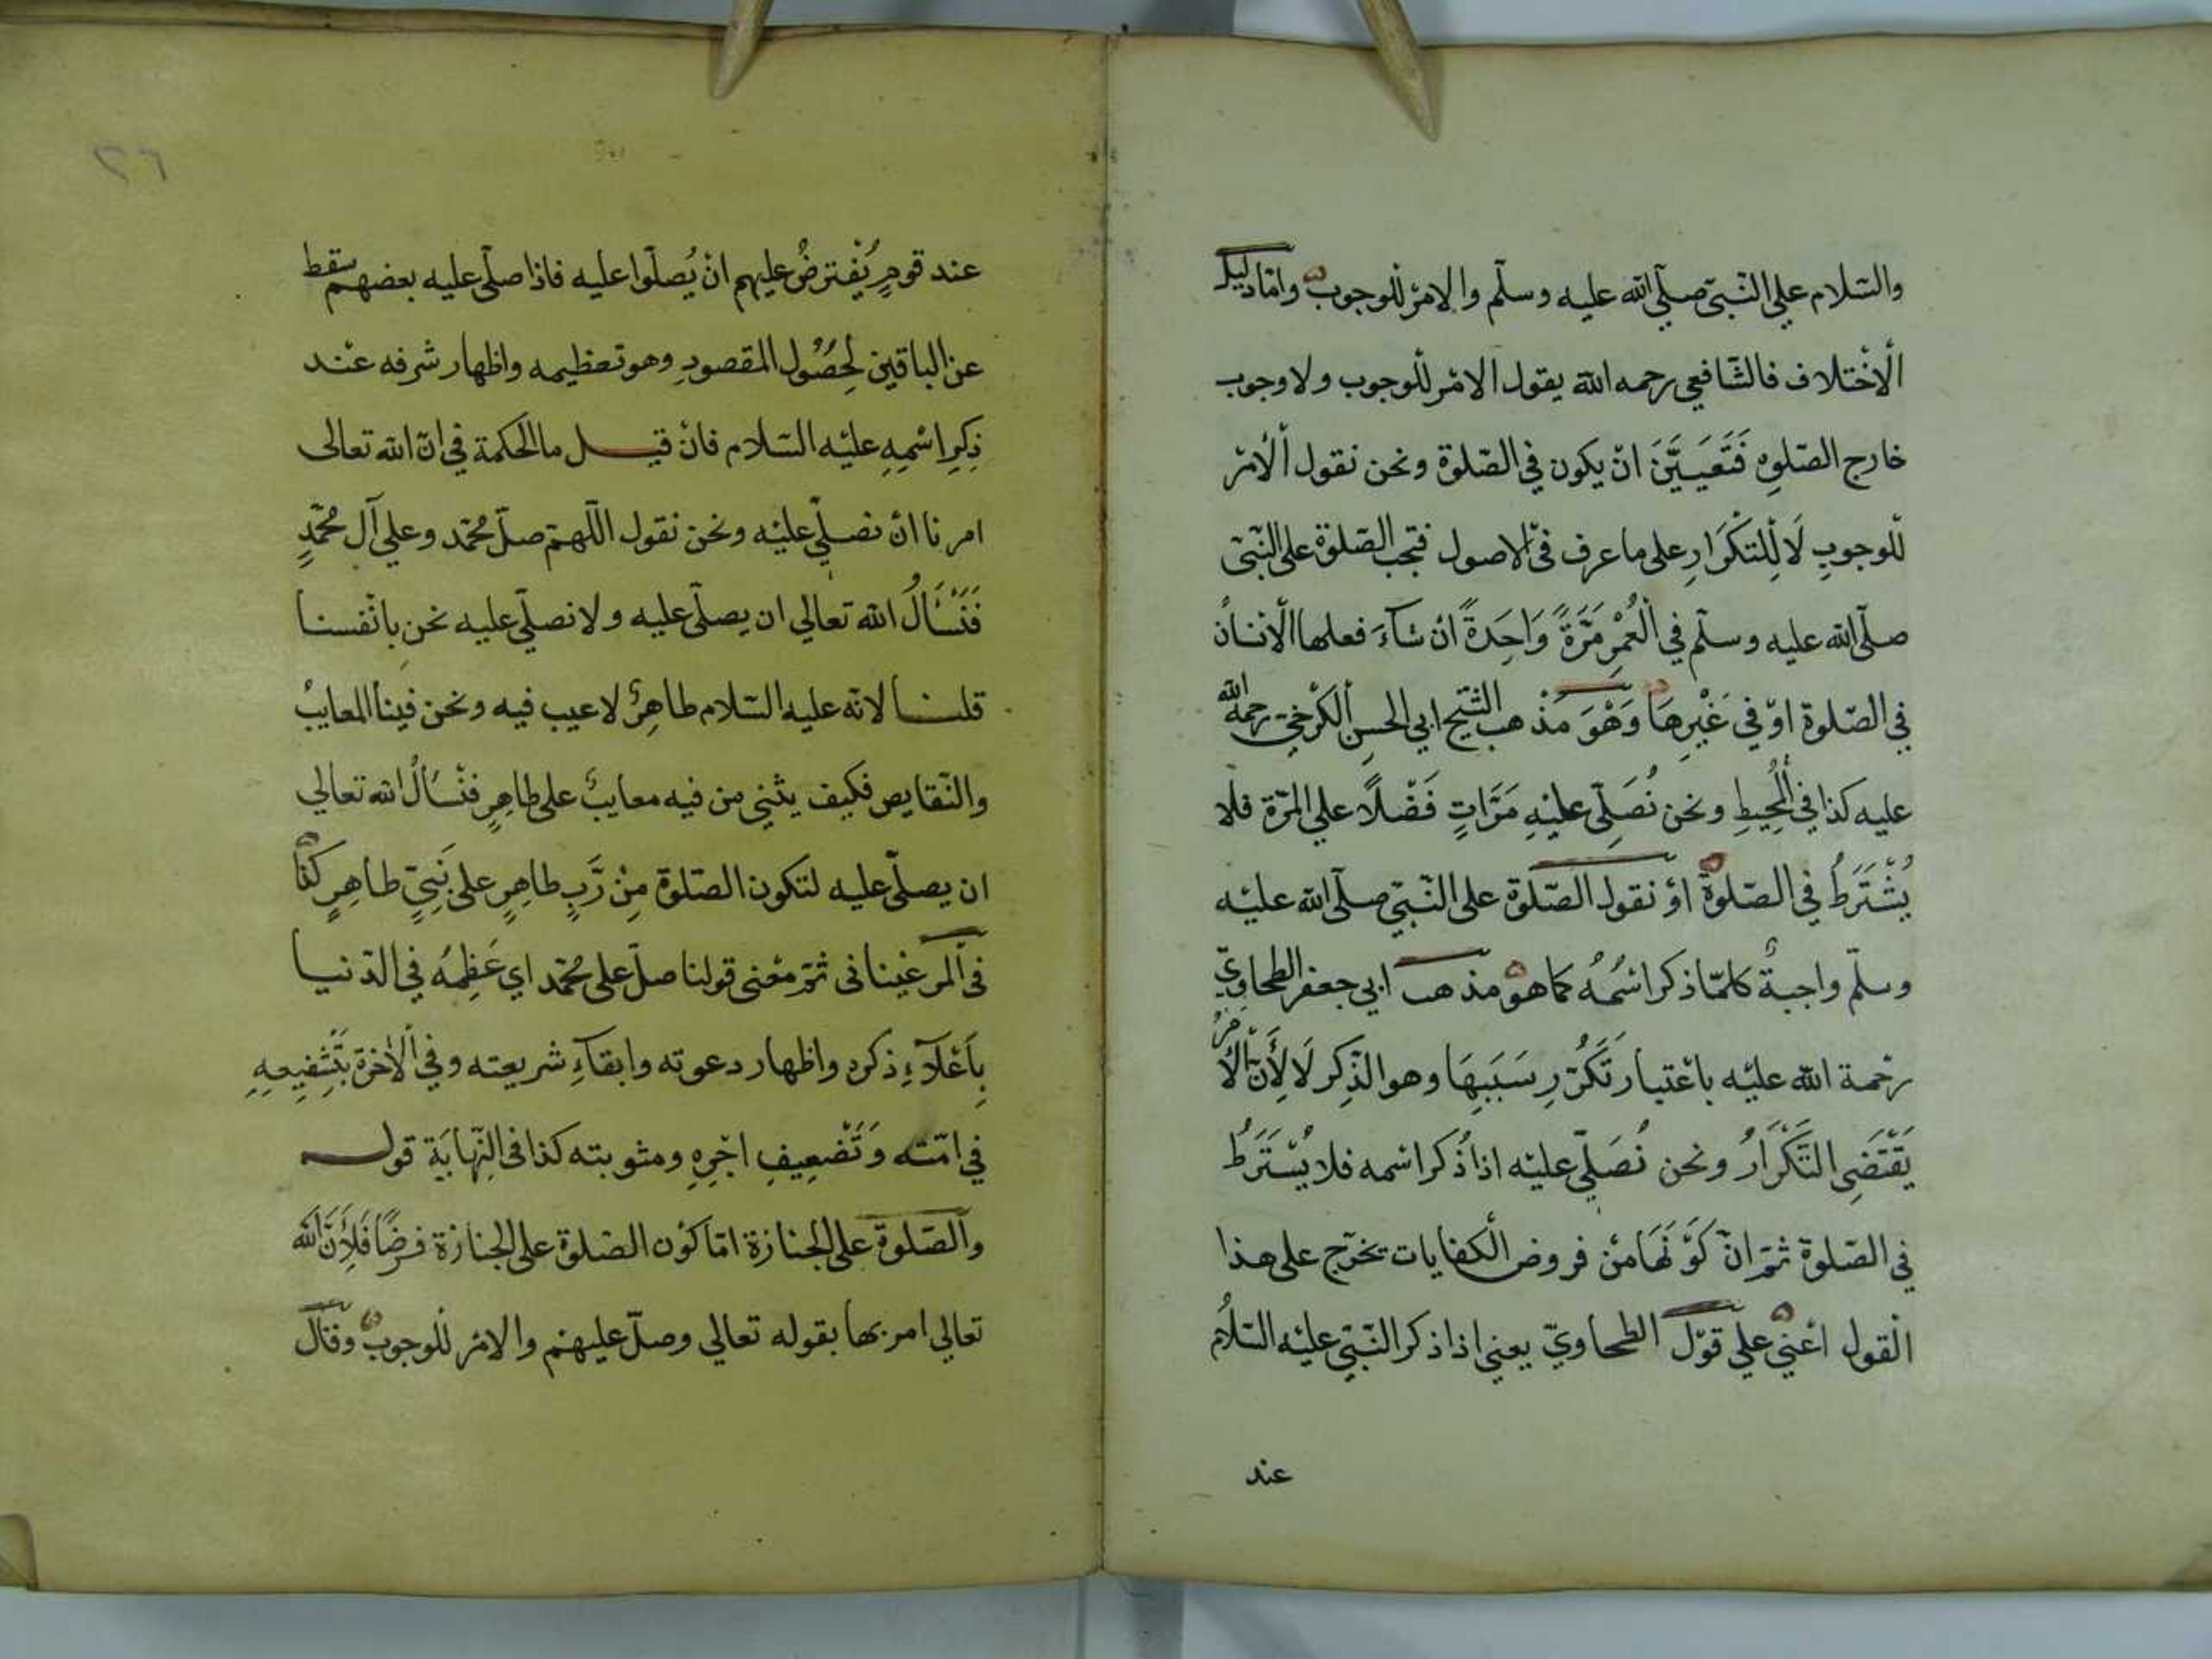 والسّلام علي النّبيّ صلّي الله عليه وسلّم والامر للوجوب وامّا دليل
الاختلاف فالشّافعي رحمه الله يقول الامر للوجوب ولا وجوب
خارج الصّلوة فَتَعَيَّنَ انّ يكون في الصّلوة ونحن نقول الامر
للوجوبِ لَا لِلتّكْرَارِ علي ما عرف في الاصول فتجب الصّلوة علي النّبيّ
صلّي الله عليه وسلّم في الْعُمْرِ مَرَّةً وَاحِدَةً ان شآءَ فعلها الانسان
في الصّلوة اوْ في غَيْرِهَا وَهْوَ مَذْهب الشّيخ ابي الحسن الكرْخيّ رحمة الله
عليه كذا في الْمُحِيطِ ونحن نُصَلِّي عليْهِ مَرَّاتٍ فَضْلًا علي المرّة فلا
يُشْتَرَطُ في الصّلوة اوْ نقول الصّلوة علي النّبيّ صلّي الله عليْه
وسلّم واجبةٌ كلّمَا ذكر اسْمُهُ كما هو مذهب ابي جعفر الطحاويّ
رحْمة الله عليْه باعْتبار تَكَرُّرِ سَبَبِهَا وهو الذِّكر لَا لِأَنّ الْأَمْرَ
يَقْتَضِي التَّكْرَارُ ونحن نُصَلّي عليْه اذا ذُكر اسْمه فلا يُشْتَرَطُ
في الصّلوة ثمّ انّ كَوْنَهَا منْ فروض الكفايات تخرّج علي هذا
الْقول اعْني علي قوْل الطحاويّ يعني اذا ذكر النّبيّ عليْه السّلام
عند
٢٦
عند قومٍ يُفْترضُ عليهم انْ يُصلّوا عليه فاذا صلّي عليه بعضهم سقط
عن الباقين لِحُصُولِ المقصودِ وهو تعظيمه واظهار شرفه عنْد
ذِكرِ اسْمِهِ عليْه السّلام فانْ قيل ما الحكمة في انّ الله تعالى
امرنا انْ نصلّي عليْه ونحن نقول اللّهمّ صلّ محمّد وعلي آل محمّدٍ
فَنَسْأَلُ الله تعالي ان يصلّي عليه ولا نصلّي عليه نحن بانْفسنا
قلنا لانّه عليه السّلام طاهِرٌ لا عيب فيه ونحن فينا المعايبُ
والنّقايص فكيف يثني من فيه معايبُ علي طاهِرٍ فنْسألُ الله تعالي
ان يصلّي عليه لتكون الصّلوة مِنْ رَّبٍ طاهِرٍ علي نَبِيٍّ طاهِرٍ كذا
في المرغيناني ثمّ معْني قولنا صلّ علي محمّد اي عَظِمْهُ في الدّنيا
بِاَعْلَآءِ ذكره واظهار دعوته وابقآءِ شريعته وفي الآخرة بتَشْفِيعِهِ
في امّته وَتَضْعِيفِ اجْرِهِ ومثوبته كذا في النّهايَة قوله
والصّلوة علي الجنازة امّا كوْن الصّلوة علي الجنازة فرضًا فَلِأَنَّ الله
تعالي امر بها بقوله تعالي وصلّ عليهمْ والامر للوجوب وقال